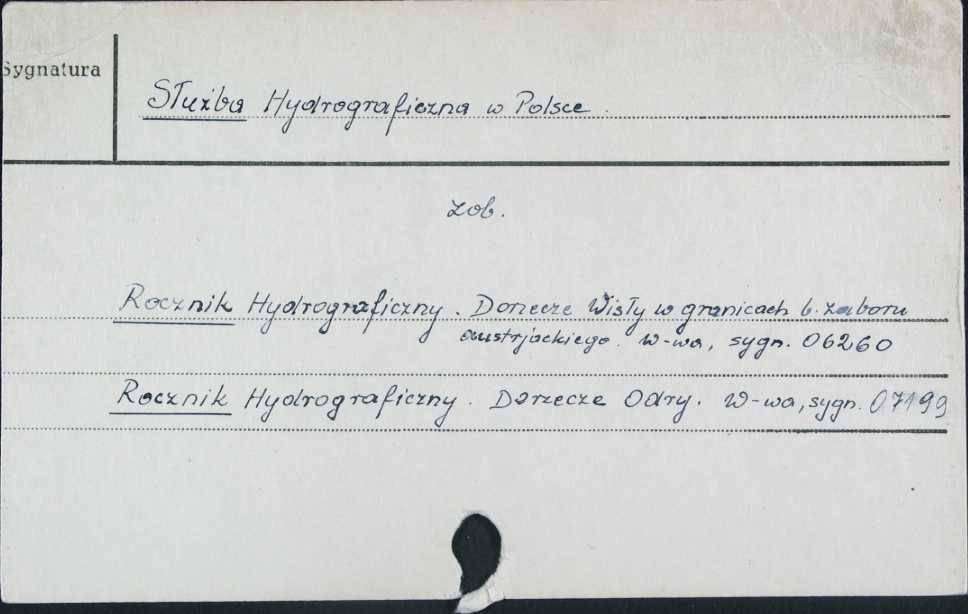 Sygnatura
Służba Hydrograficzna w Polsce.
zob.
Rocznik Hydrograficzny. Dorzecze Wisły w granicach b. zaboru
austrjackiego. W-wa, sygn. 06260
Rocznik Hydrograficzny. Dorzecze Odry. W-wa, sygn. 07199